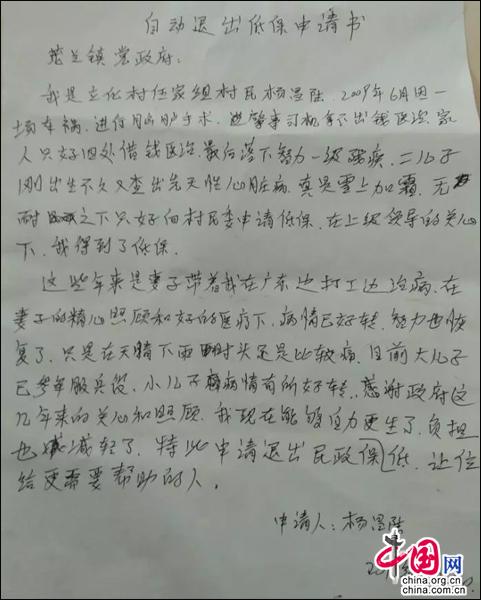 自动退出低保申请书
楚兰镇党政府：
我是立化村任家组村民杨昌陆，2009年6月因一
场车祸，进行开颅手术，遇肇事司机拿不出钱医治，家
人只好四处借钱医治，最后落下智力一级残疾，二儿子
刚出生不久又查出先天性心脏病，真是雪上加霜，无
耐之下只好向村民委申请低保，在上级领导的关心
下，我得到了低保。
这些年来是妻子带着我在广东边打工边治病，在
妻子的精心照顾和好的医疗下，病情已好转，智力也恢
复了，只是在天晴下雨时头还是比较痛，目前大儿子
已参年服兵役，小儿子病情有所好转，感谢政府这
几年来的关心和照顾，我现在能够自力更生了，负担
也减轻了，特此申请退出民政保低，让位
给更需要帮助的人。
申请人：杨昌陆
中国网
china.org.cn
china.com.cn